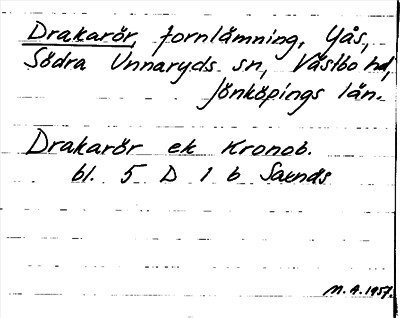 Drakarör, fornlämning, Yås,
Södra Unnaryds sn, Västbo hd,
Jönköpings län.
Drakarör ek Kronob.
bl. 5 D 1 b Saknds
M. A. 1957.